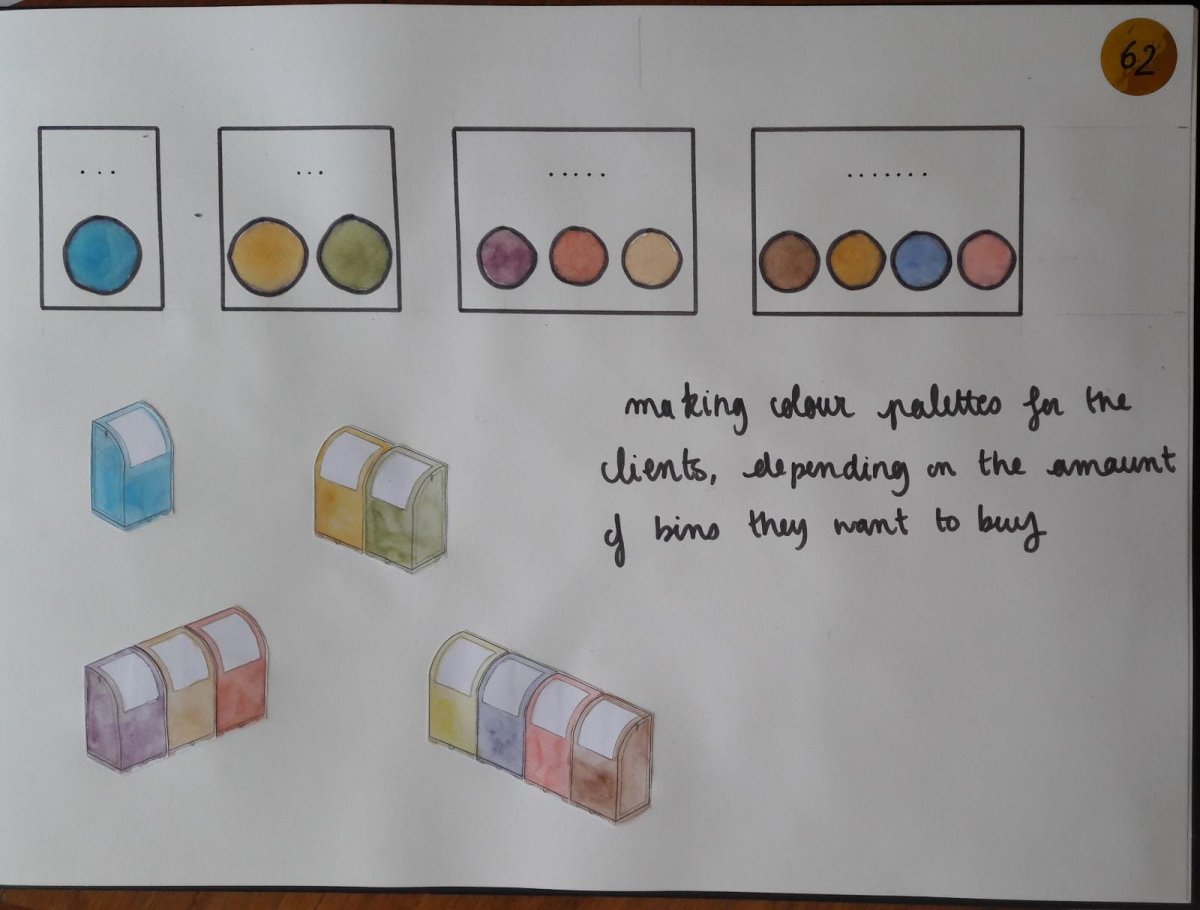 62
... ... ..... .......
making colour palettes for the
clients, depending on the amaunt
of bins they want to buy